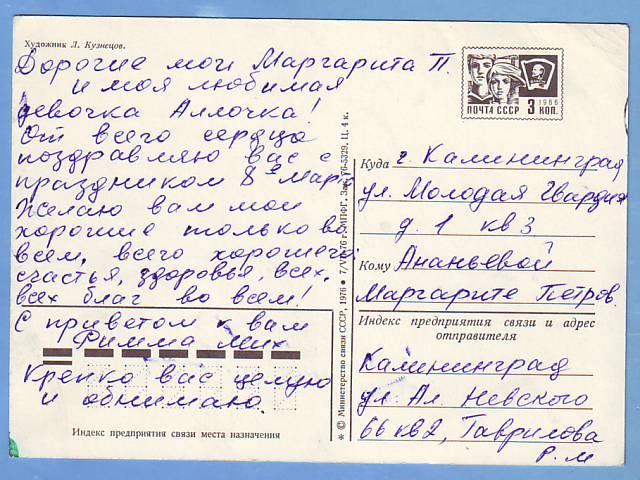 Художник Л. Кузнецов.
Дорогие мои Маргарита П.
и моя любимая
девочка Аллочка!
От всего сердца
поздравляю вас с
праздником 8е Марта
Желаю вам мои
хорошие только во
всем, всего хорошего,
счастья, здоровья, всех,
всех благ во всем!
С приветом к вам
Римма Мих
Крепко вас целую
и обнимаю.
Индекс предприятия связи места назначения
* © Министерство связи СССР, 1976 ● 7/VII-76 г. МПФГ. Зак. 76-5329. Ц. 4 к.
1966
ПОЧТА СССР 3 КОП.
Куда г. Калининград
ул. Молодая Гвардия
д. 1 кв 3
Кому Ананьевой
Маргарите Петров.
Индекс предприятия связи и адрес
отправителя
Калининград
ул. Ал. Невского
66 кв 2, Гаврилова
Р. М